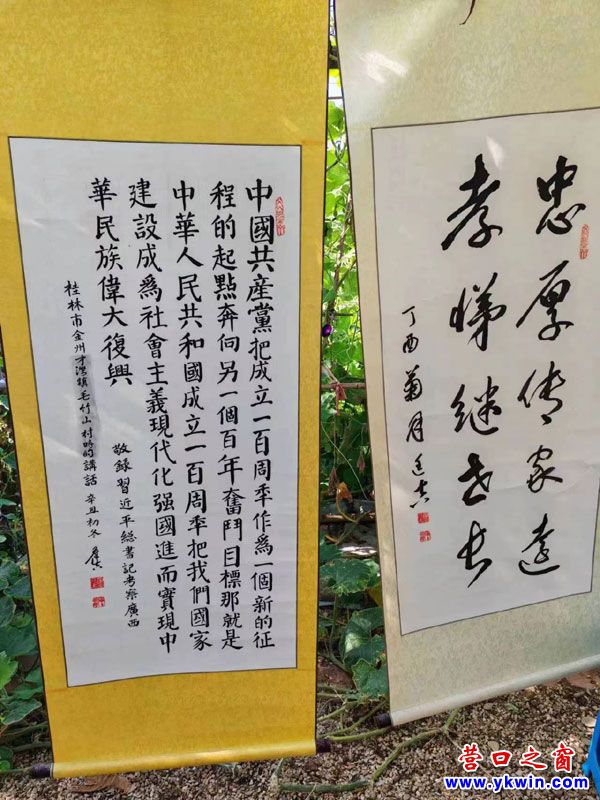 忠厚传家遠
孝悌继世长
丁酉菊月
中國共產黨把成立一百周年作爲一個新的征
程的起點奔向另一個百年奮鬥目標那就是
中華人民共和國成立一百周年把我們國家
建設成爲社會主義現代化强國進而實現中
華民族偉大復興
敬録習近平總書記考察廣西
桂林市金州才灣鎮毛竹山村時的講話 辛丑初冬
营口之窗
www.ykwin.com